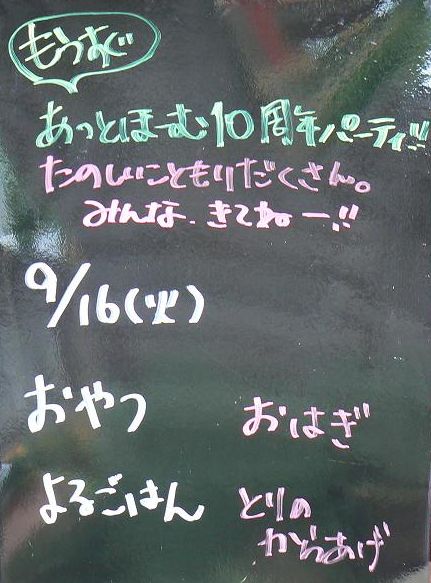 もうすぐ
あっとほーむ10周年パーティ!!
たのしいこともりだくさん。
みんな、きてねー!!
9/16(火)
おやつ おはぎ
よるごはん とりの
からあげ